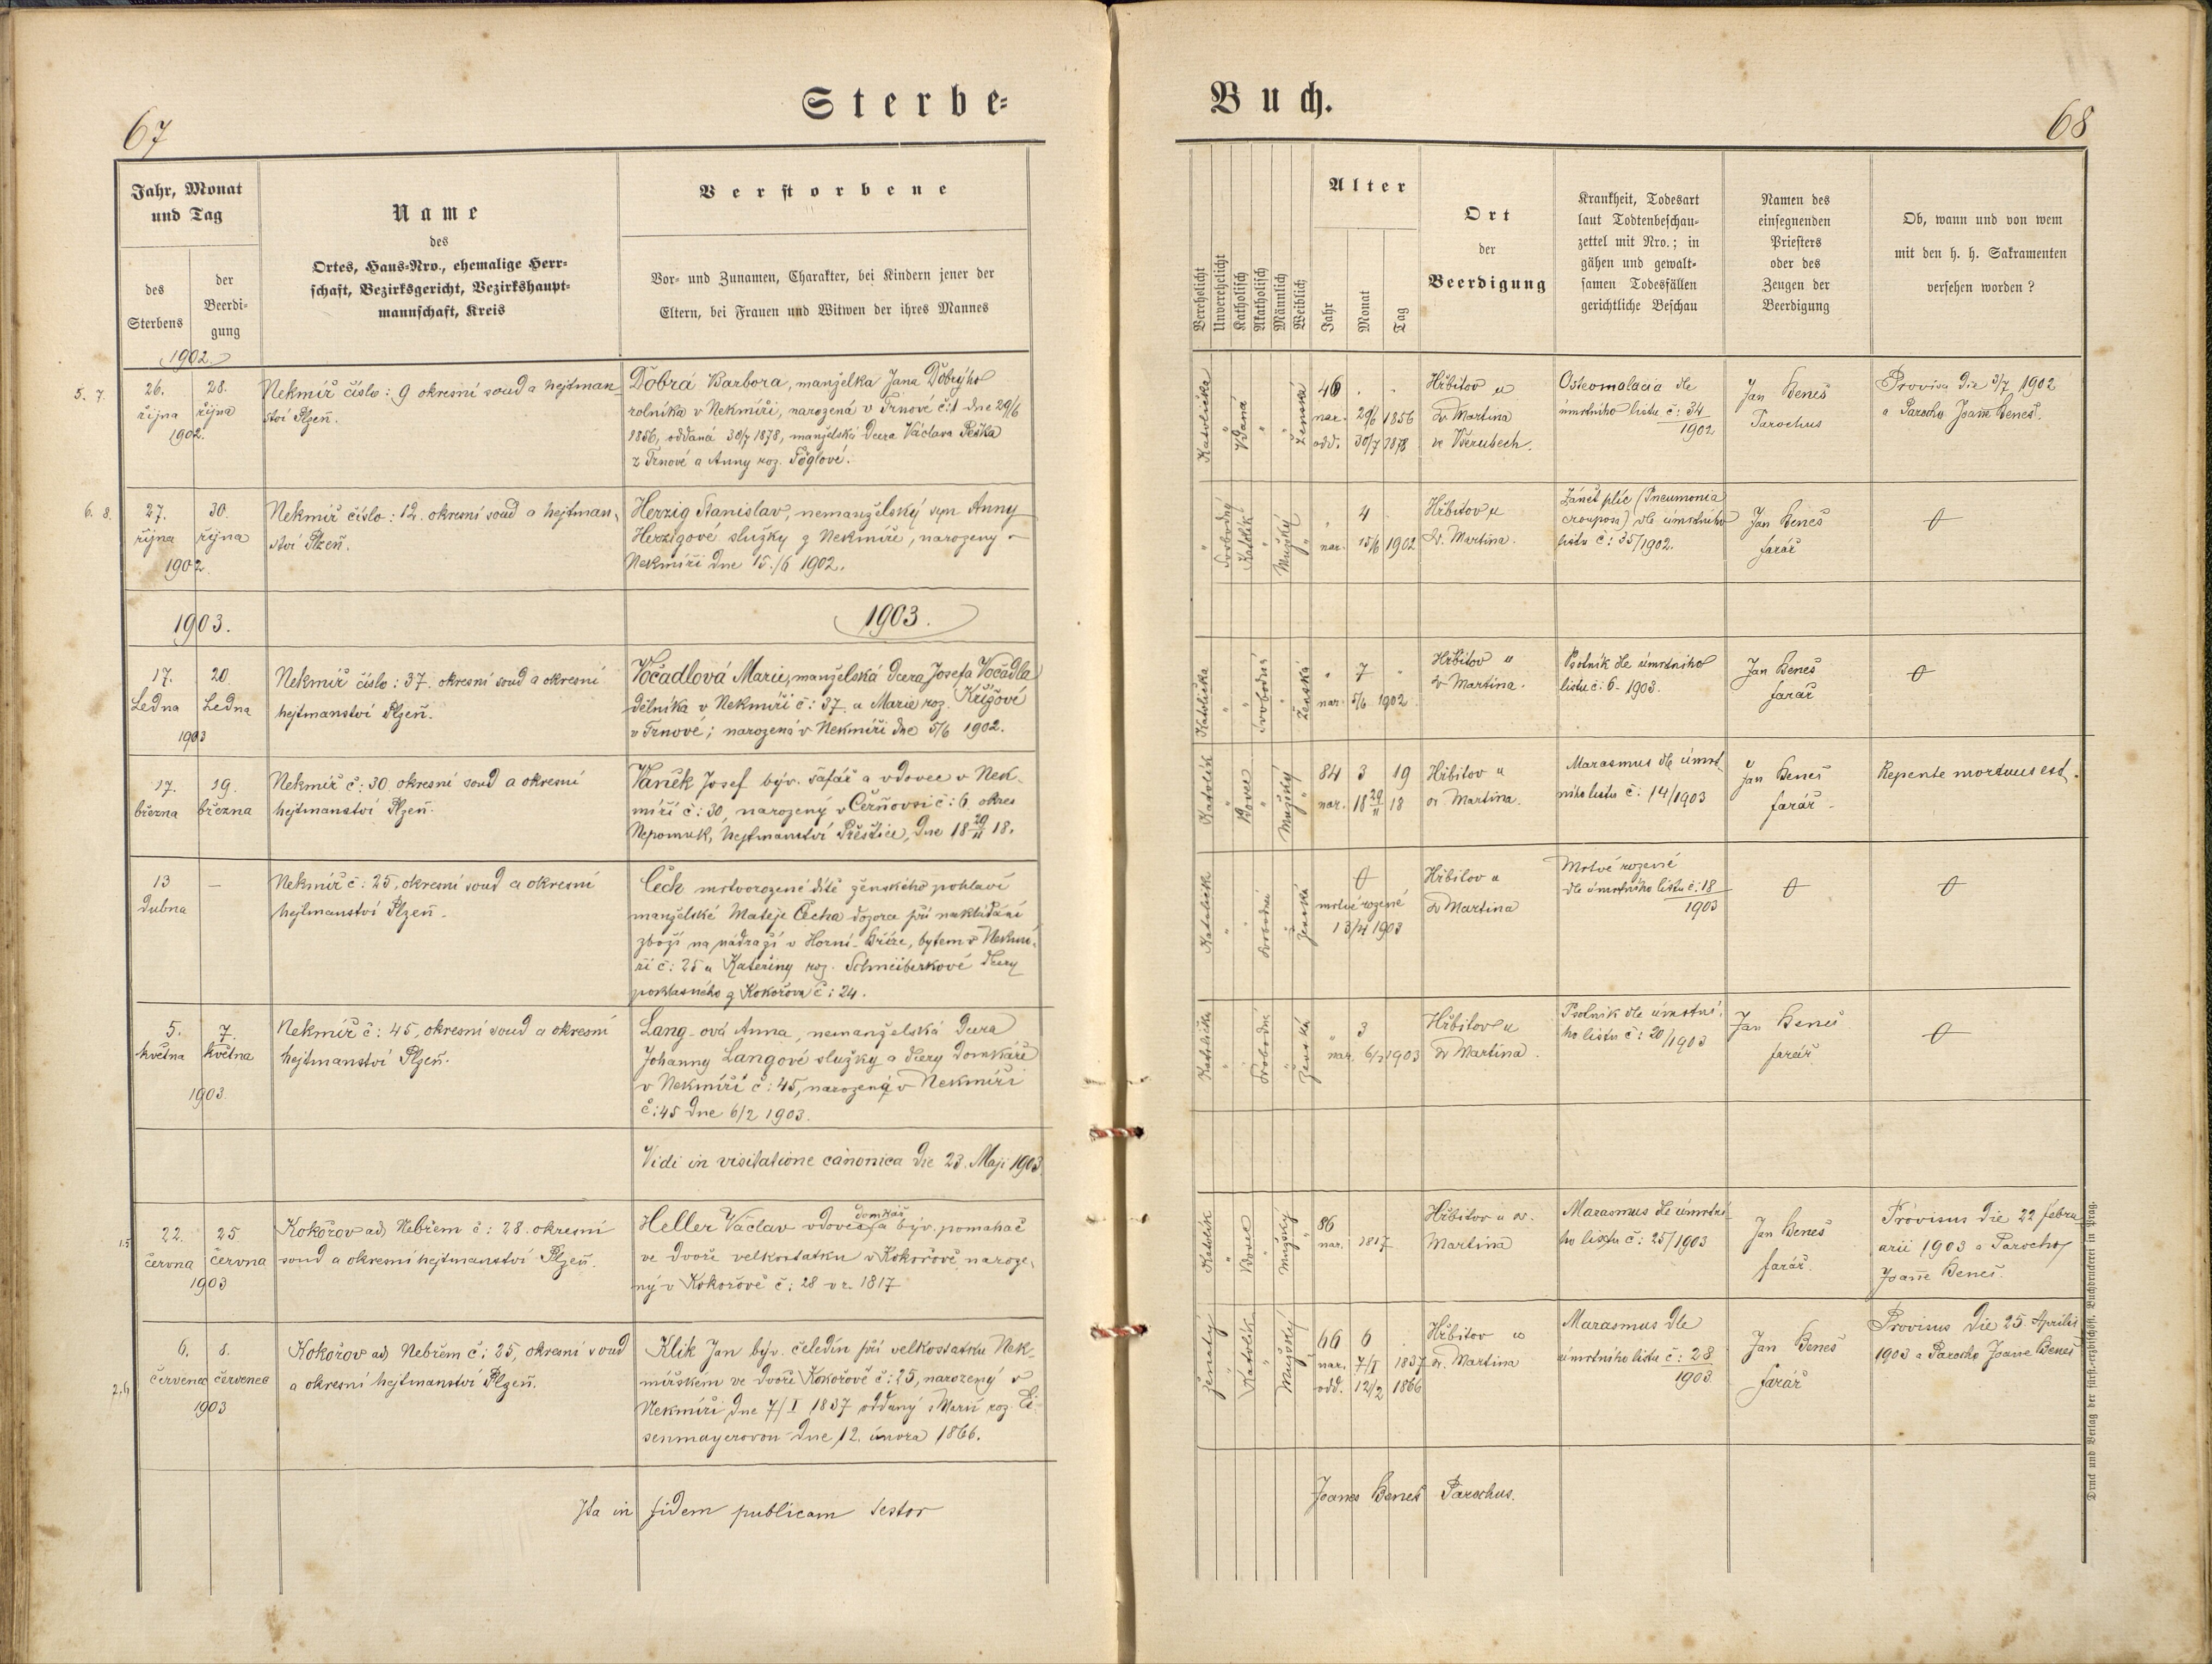 Sterbe-
67
Jahr, Monat
und Tag
des
Sterbens
der
Beerdi-
gung
Name
des
Ortes, Haus-Nro., ehemalige Herr-
schaft, Bezirksgericht, Bezirkshaupt-
mannschaft, Kreis
Verstorbene
Vor- und Zunamen, Charakter, bei Kindern jener der
Eltern, bei Frauen und Witwen der ihres Mannes
1902
5. 7.
26. 28.
října října
1902.
Nekmíř číslo: 9 okresní soud a hejtman-
ství Plzeň.
Dobrá Barbora, manželka Jana Dobrýho
rolníka v Nekmíři, narozená v Trnové č:1 dne 29/6
1856, oddaná 30/7 1878, manželská dcera Václava Peška
z Trnové a Anny roz. Föglové.
6. 8.
27. 30.
října října
1902.
Nekmíř číslo: 12. okresní soud a hejtman-
ství Plzeň.
Herzig Stanislav, nemanželský syn Anny
Herzigové služky z Nekmíře, narozený v
Nekmíři dne 15./6 1902.
1903.
1903.
17. 20.
Ledna Ledna
1903
Nekmíř číslo: 37. okresní soud a okresní
hejtmanství Plzeň.
Vočadlová Marie, manželská dcera Josefa Vočadla
dělníka v Nekmíři č: 37. a Marie roz. Křížové
v Trnové; narozená v Nekmíři dne 5/6 1902.
17. 19.
března března
Nekmíř č: 30 okresní soud a okresní
hejtmanství Plzeň.
Vaněk Josef býv. šafář a vdovec v Nek-
míři č: 30, narozený v č: 6 okres
Nepomuk, hejtmanství Přeštice, dne 18 29/11 18.
13 —
dubna
Nekmíř č: 25, okresní soud a okresní
hejtmanství Plzeň.
Čech mrtvorozené dítě ženského pohlaví
manželské Matěje Čecha dozorce při nakládání
zboží na nádraží v Horní-Bříze, bytem v Nekmí-
ři č: 25 a Kateřiny roz. dcery
z Kokořova č: 24.
5. 7.
května května
1903.
Nekmíř č: 45, okresní soud a okresní
hejtmanství Plzeň.
Lang-ová Anna, nemanželská dcera
Johanny Langové služky a dcery domkáře
v Nekmíři č: 45, narozená v Nekmíři
č: 45 dne 6/2 1903.
Vidi in visitatione canonica die 23. Maji 1903.
1.5
22. 25
června června
1903
Kokořov ad Nebřem č: 28. okresní
soud a okresní hejtmanství Plzeň.
domkář
Heller Václav vdovec a býv. pomahač
ve dvoře velkostatku v Kokořově, naroze-
ný v Kokořově č: 28 v r. 1817
2.6
6. 8.
července července
1903
Kokořov ad Nebřem č: 25, okresní soud
a okresní hejtmanství Plzeň.
Klik Jan býv. čeledín při velkostatku Nek-
mířském ve dvoře Kokořově č: 25, narozený v
Nekmíři dne 7/I 1837 oddaný s Marií roz. Ei-
senmayerovou dne 12. února 1866.
Ita in fidem publicam testor
Buch.
68
Verehelicht
Unverehelicht
Katholisch
Akatholisch
Männlich
Weiblich
Alter
Jahr
Monat
Tag
Ort
der
Beerdigung
Krankheit, Todesart
laut Todtenbeschau-
zettel mit Nro.; in
gähen und gewalt-
samen Todesfällen
gerichtliche Beschau
Namen des
einsegnenden
Priesters
oder des
Zeugen der
Beerdigung
Ob, wann und von wem
mit den h. h. Sakramenten
versehen worden?
Katolička
Vdaná
Ženská
46 . .
nar. 29/6 1856
odd. 30/7 1878
Hřbitov u
sv Martina
ve Všerubech.
Osteomalacia dle
úmrtního listu č: 34
1902
Jan Beneš
Parochus
Provisa die 3/7 1902
a Parocho Joanne Beneš.
Svobodný
Katolík
Mužský
" 4
nar. 15/6 1902
Hřbitov u
sv. Martina.
Zánět plic (Pneumonia
crouposa) dle úmrtního
listu č: 35/1902.
Jan Beneš
farář
Katolička
Svobodná
Ženská
" 7 "
nar. 5/6 1902
Hřbitov u
sv Martina.
Psotník dle úmrtního
listu č: 6-1903.
Jan Beneš
farář
Katolík
Vdovec
Mužský
84 3 19
nar. 18 29/11 18
Hřbitov u
sv Martina.
Marasmus dle úmrt-
ního listu č: 14/1903
Jan Beneš
farář
Repente mortuus est.
Katolička
Svobodná
Ženská
mrtvě rozené
13/IV 1903
Hřbitov u
sv Martina
Mrtvě rozené
dle úmrtního listu č: 18
1903
Katolička
Svobodná
Ženská
" 3
nar. 6/2 1903
Hřbitov u
sv Martina.
Psotník dle úmrtní-
ho listu č: 20/1903
Jan Beneš
farář.
Katolík
Vdovec
Mužský
86
nar. 1817
Hřbitov u sv.
Martina
Marasmus dle úmrtní-
ho listu č: 25/1903
Jan Beneš
farář.
Provisus die 22 febru-
arii 1903 a Parocho
Joanne Beneš.
ženatý
Katolík
Mužský
66 6 .
nar. 7/I 1837
odd. 12/2 1866
Hřbitov u
sv. Martina
Marasmus dle
úmrtního listu č: 28
1903
Jan Beneš
farář
Provisus die 25 Aprilis
1903 a Parocho Joanne Beneš
Joanes Beneš Parochus.
Druck und Verlag der fürst-erzbischöfl. Buchdruckerei in Prag.